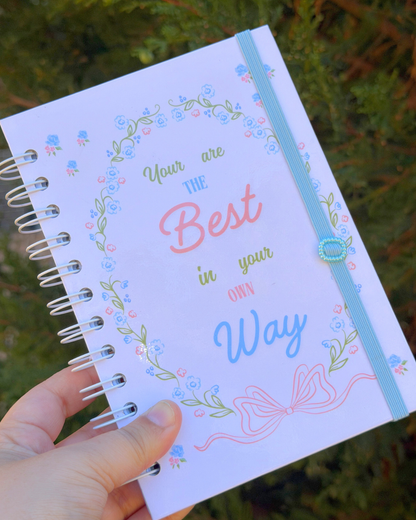 Your are
THE
Best
in your
OWN
Way